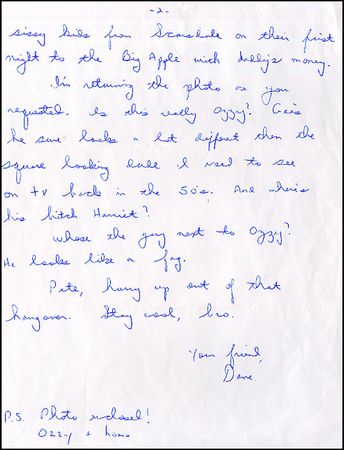 -2-
sissy kids from Scarsdale on their first
night to the Big Apple with daddy's money.
I'm returning the photo as you
requested. Is this really Ozzy? Gees
he sure looks a lot different then the
square looking dude I used to see
on TV back in the 50's. And where's
his bitch Harriet?
Whose the guy next to Ozzy?
He looks like a fag.
Pete, hurry up out of that
hangover. Stay cool, bro.
Your friend,
Dave
P.S. Photo enclosed!
Ozzy + homo